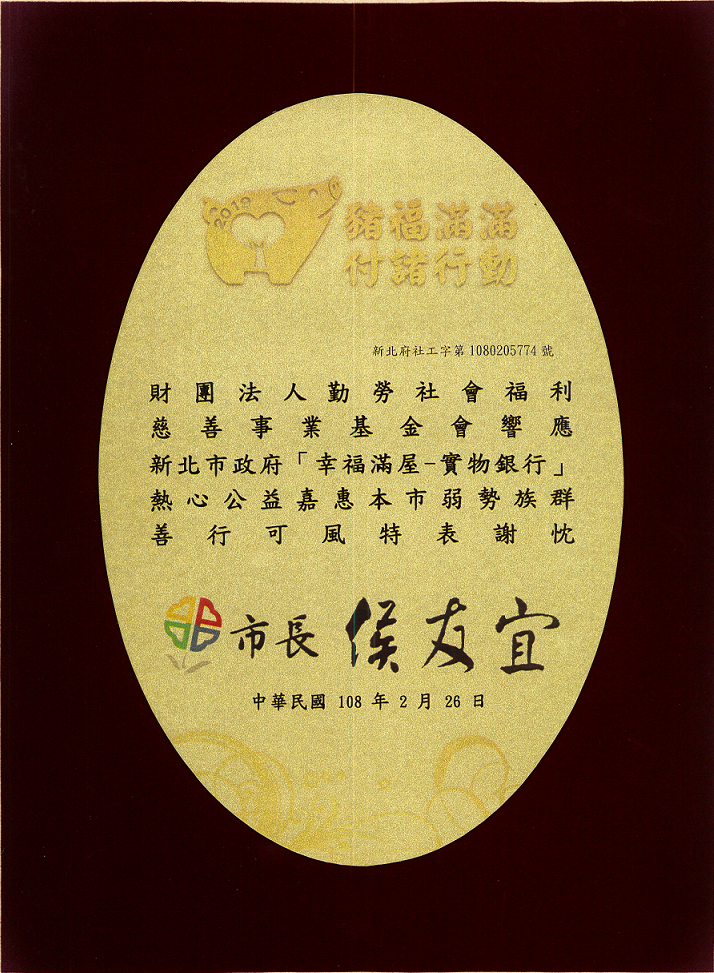 2019
豬福滿滿
付諸行動
新北府社工字第1080205774號
財團法人勤勞社會福利
慈善事業基金會響應
新北市政府「幸福滿屋-實物銀行」
熱心公益嘉惠本市弱勢族群
善行可風特表謝忱
市長 侯友宜
中華民國 108 年 2 月 26 日